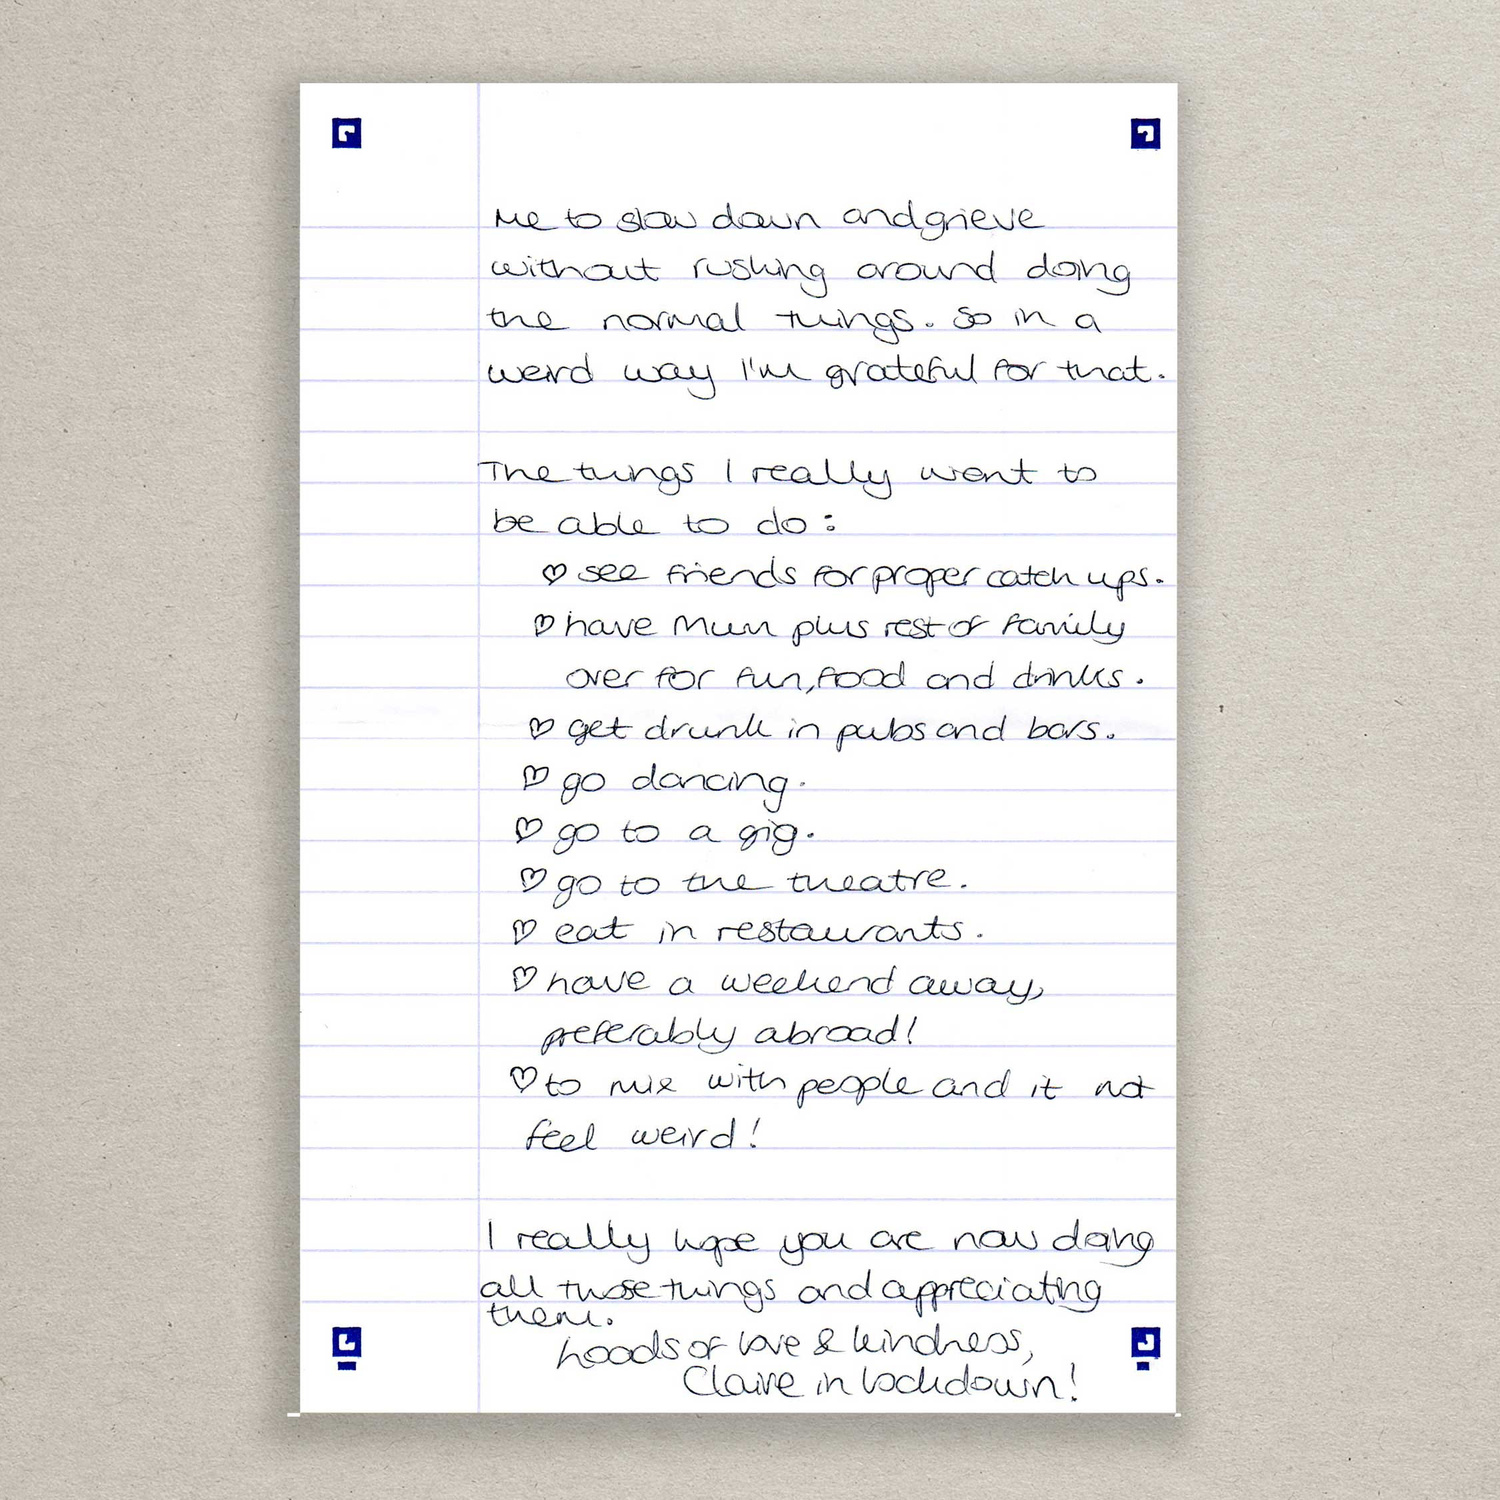 me to slow down and grieve
without rushing around doing
the normal things. So in a
weird way I'm grateful for that.
The things I really want to
be able to do:
♡ see friends for proper catch ups.
♡ have Mum plus rest of family
over for fun, food and drinks.
♡ get drunk in pubs and bars.
♡ go dancing.
♡ go to a gig.
♡ go to the theatre.
♡ eat in restaurants.
♡ have a weekend away,
preferably abroad!
♡ to mix with people and it not
feel weird!
I really hope you are now doing
all those things and appreciating
them.
Loads of love & kindness,
Claire in lockdown!